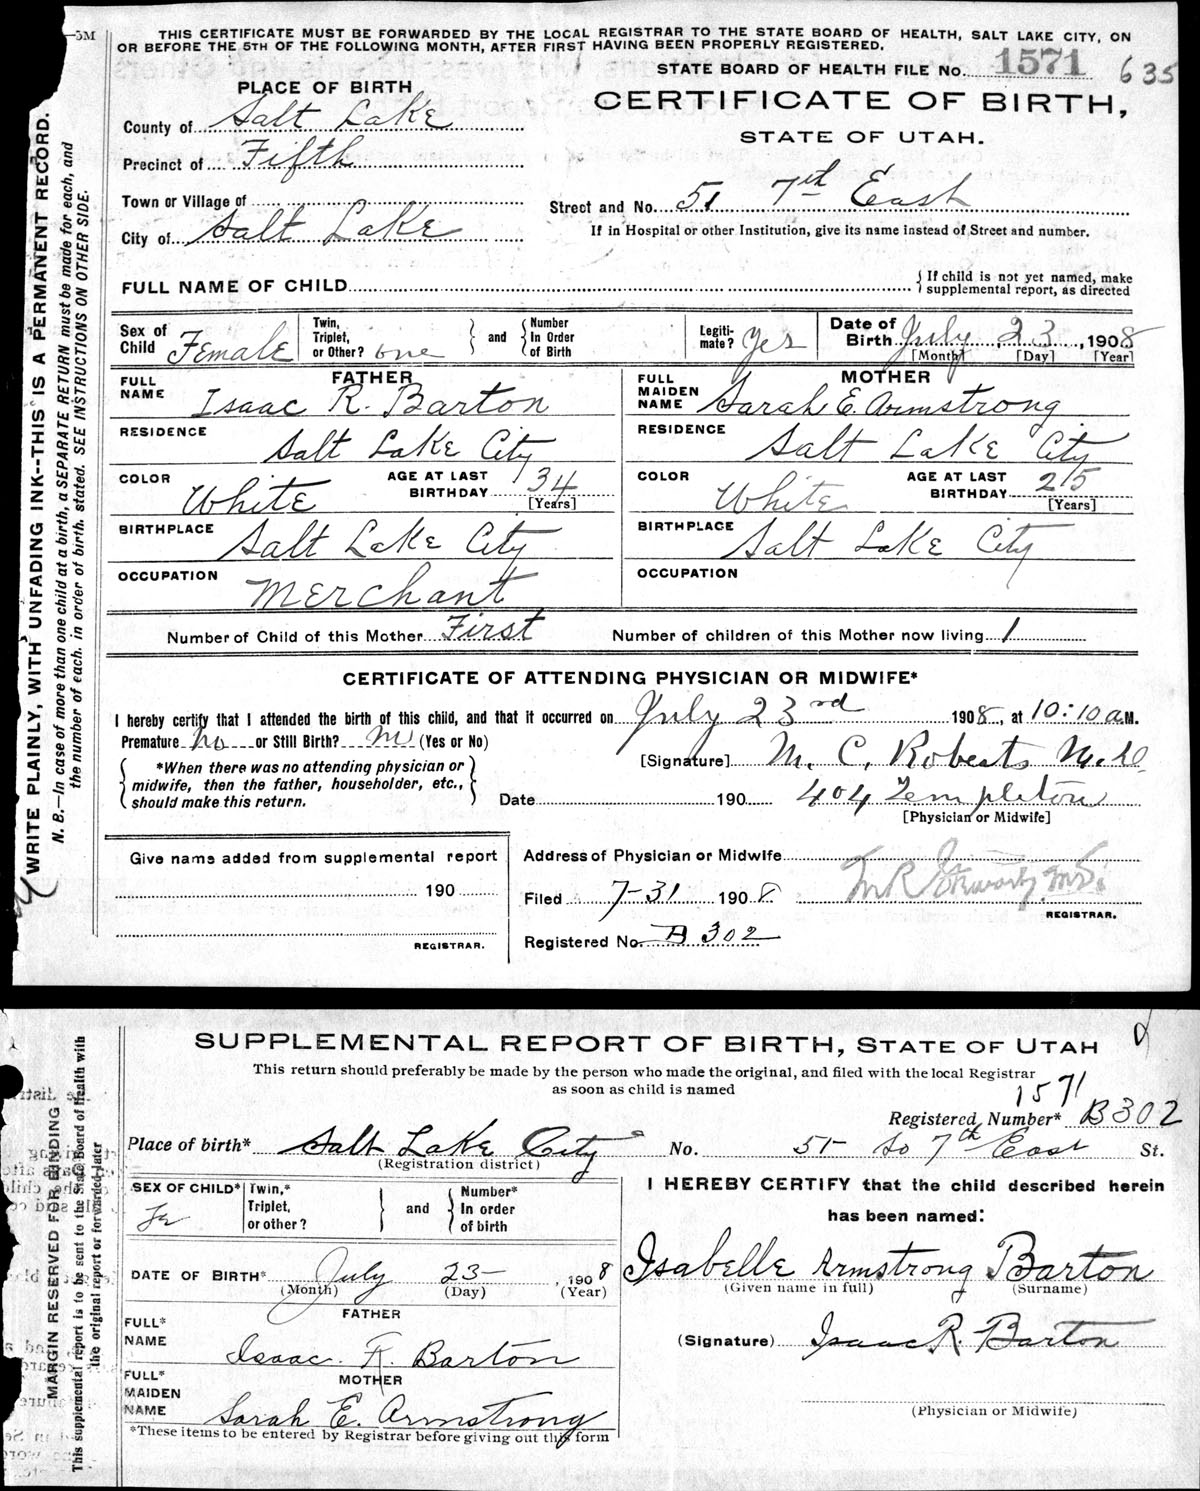 —5M
THIS CERTIFICATE MUST BE FORWARDED BY THE LOCAL REGISTRAR TO THE STATE BOARD OF HEALTH, SALT LAKE CITY, ON
OR BEFORE THE 5TH OF THE FOLLOWING MONTH, AFTER FIRST HAVING BEEN PROPERLY REGISTERED.
STATE BOARD OF HEALTH FILE No. 1571 635
PLACE OF BIRTH
CERTIFICATE OF BIRTH,
STATE OF UTAH.
County of Salt Lake
Precinct of Fifth
Town or Village of
City of Salt Lake
Street and No. 51 7th East
If in Hospital or other Institution, give its name instead of Street and number.
FULL NAME OF CHILD
{If child is not yet named, make
supplemental report, as directed
WRITE PLAINLY, WITH UNFADING INK--THIS IS A PERMANENT RECORD.
N. B.—In case of more than one child at a birth, a SEPARATE RETURN must be made for each, and
the number of each. in order of birth. stated. SEE INSTRUCTIONS ON OTHER SIDE.
Sex of Child Female
Twin, Triplet, or Other? one } and { Number In Order of Birth
Legiti-mate? Yes
Date of Birth July 23, 1908
[Month] [Day] [Year]
FATHER
FULL NAME Isaac R. Barton
RESIDENCE Salt Lake City
COLOR White AGE AT LAST BIRTHDAY 34 [Years]
BIRTHPLACE Salt Lake City
OCCUPATION Merchant
MOTHER
FULL MAIDEN NAME Sarah E. Armstrong
RESIDENCE Salt Lake City
COLOR White AGE AT LAST BIRTHDAY 25 [Years]
BIRTHPLACE Salt Lake City
OCCUPATION
Number of Child of this Mother First Number of children of this Mother now living 1
CERTIFICATE OF ATTENDING PHYSICIAN OR MIDWIFE*
I hereby certify that I attended the birth of this child, and that it occurred on July 23rd 1908, at 10:10 a M.
Premature No or Still Birth? no (Yes or No)
[Signature] M. C. Roberts M.D.
*When there was no attending physician or
midwife, then the father, householder, etc.,
should make this return.
Date 190 404 Templeton
[Physician or Midwife]
Give name added from supplemental report
190
REGISTRAR.
Address of Physician or Midwife
Filed 7-31 1908
REGISTRAR.
Registered No. B 302
SUPPLEMENTAL REPORT OF BIRTH, STATE OF UTAH
This return should preferably be made by the person who made the original, and filed with the local Registrar
as soon as child is named
1571
Registered Number* B302
Place of birth* Salt Lake City No. 51 So 7th East St.
(Registration district)
MARGIN RESERVED FOR BINDING
This supplemental report is to be sent to the State Board of Health with
the original report or forwarded later
SEX OF CHILD* Fe
Twin,* Triplet, or other? } and { Number* In order of birth
I HEREBY CERTIFY that the child described herein
has been named:
DATE OF BIRTH* July 23 , 1908
(Month) (Day) (Year)
Isabelle Armstrong Barton
(Given name in full) (Surname)
FATHER
FULL* NAME Isaac R. Barton
(Signature) Isaac R. Barton
MOTHER
FULL* MAIDEN NAME Sarah E. Armstrong
(Physician or Midwife)
*These items to be entered by Registrar before giving out this form